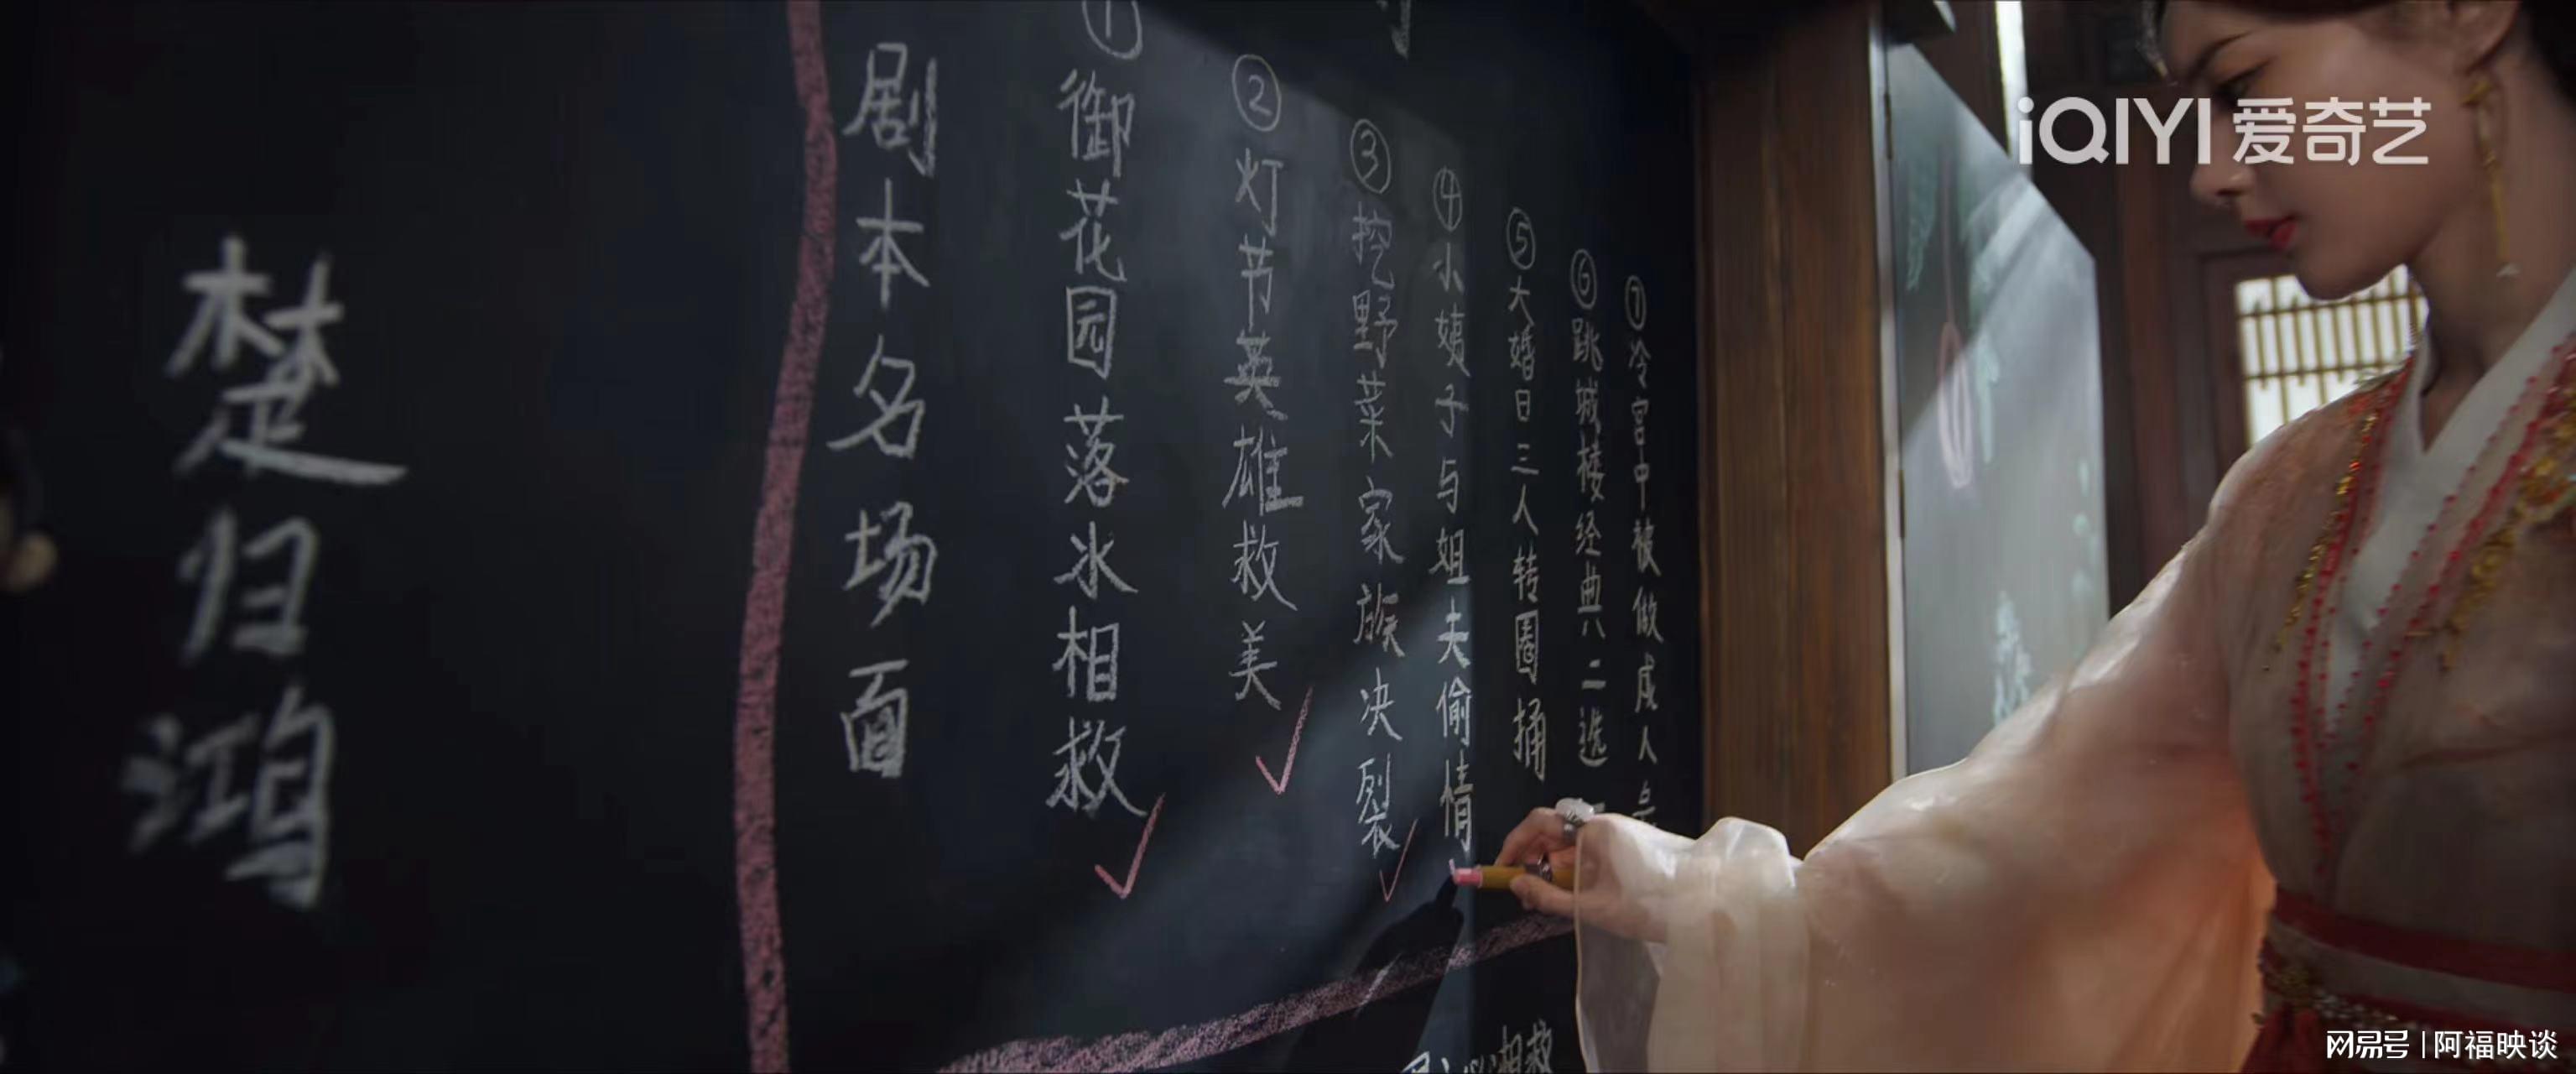 楚归鸿
剧本名场面
① 御花园落水相救
② 灯节英雄救美
③ 挖野菜家族决裂
④ 小姨子与姐夫偷情
⑤ 大婚日三人转圈捅
⑥ 跳城楼经典八二选
⑦ 冷宫中被做成人
相救
iQIYI 爱奇艺
网易号 | 阿福映谈